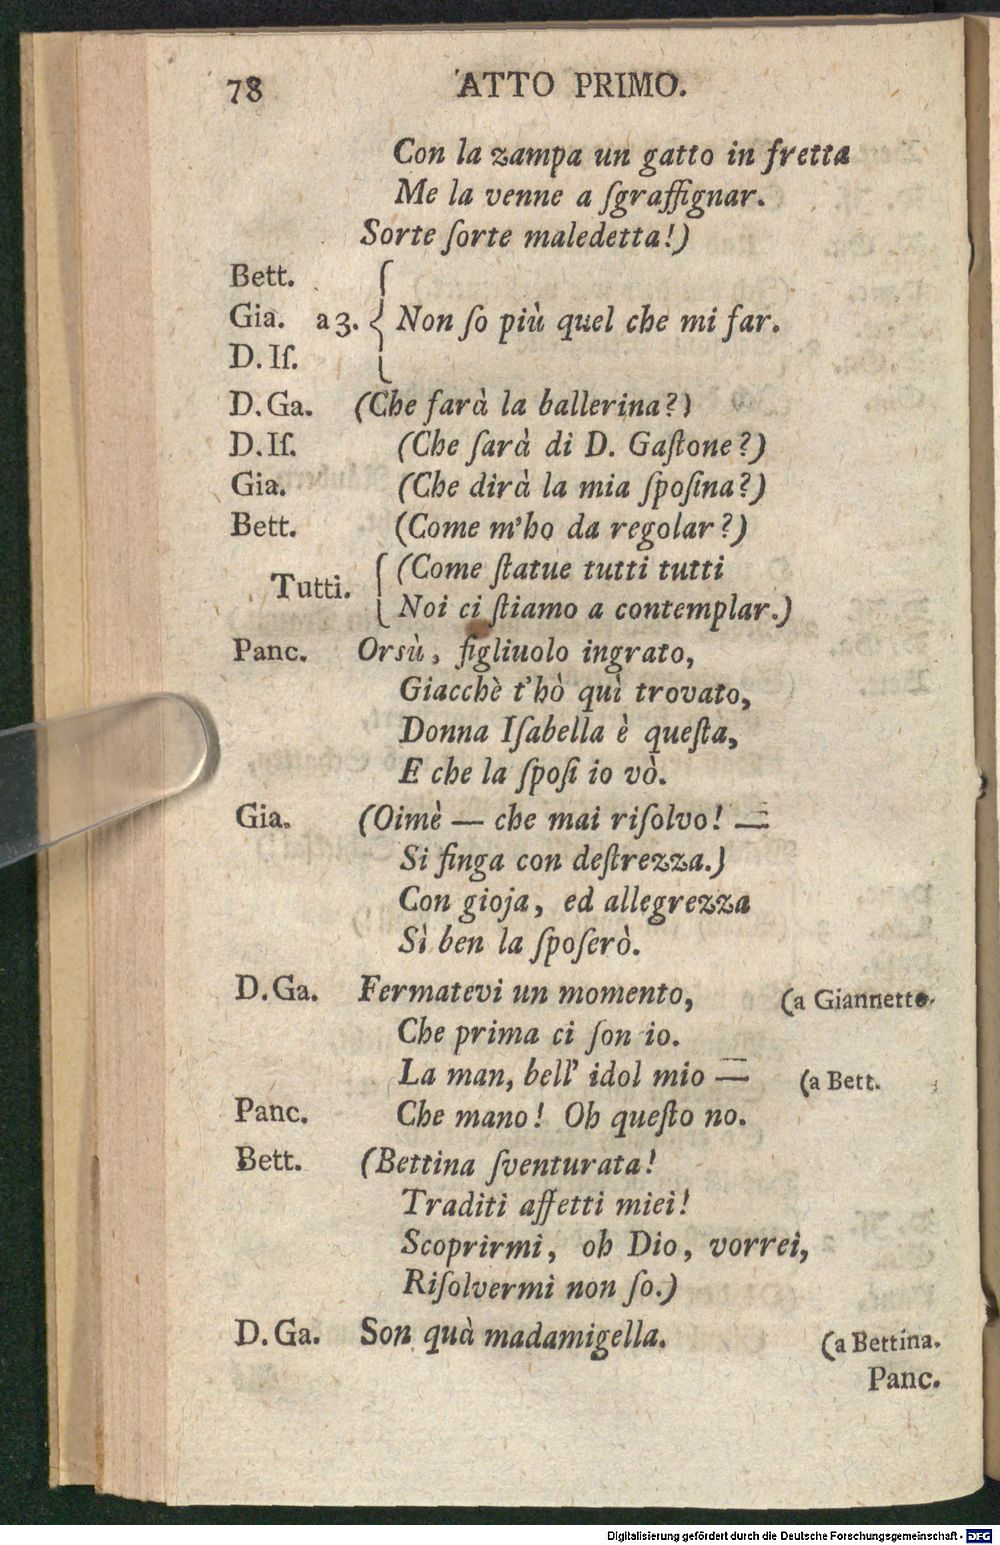 78 ATTO PRIMO.
Con la zampa un gatto in fretta
Me la venne a ſgraffignar.
Sorte ſorte maledetta!)
Bett.
Gia. a 3. { Non ſo più quel che mi far.
D. Iſ.
D. Ga. (Che farà la ballerina?)
D. Iſ. (Che ſarà di D. Gaſtone?)
Gia. (Che dirà la mia ſpoſina?)
Bett. (Come m'ho da regolar?)
Tutti. { (Come ſtatue tutti tutti
Noi ci ſtiamo a contemplar.)
Panc. Orsù, figliuolo ingrato,
Giacchè t'hò quì trovato,
Donna Iſabella è queſta,
E che la ſpoſi io vò.
Gia. (Oimè — che mai riſolvo! —
Si finga con deſtrezza.)
Con gioja, ed allegrezza
Sì ben la ſpoſerò.
D. Ga. Fermatevi un momento, (a Giannetto.
Che prima ci ſon io.
La man, bell' idol mio — (a Bett.
Panc. Che mano! Oh queſto no.
Bett. (Bettina ſventurata!
Traditi affetti miei!
Scoprirmi, oh Dio, vorrei,
Riſolvermi non ſo.)
D. Ga. Son quà madamigella. (a Bettina.
Panc.
Digitalisierung gefördert durch die Deutsche Forschungsgemeinschaft - DFG